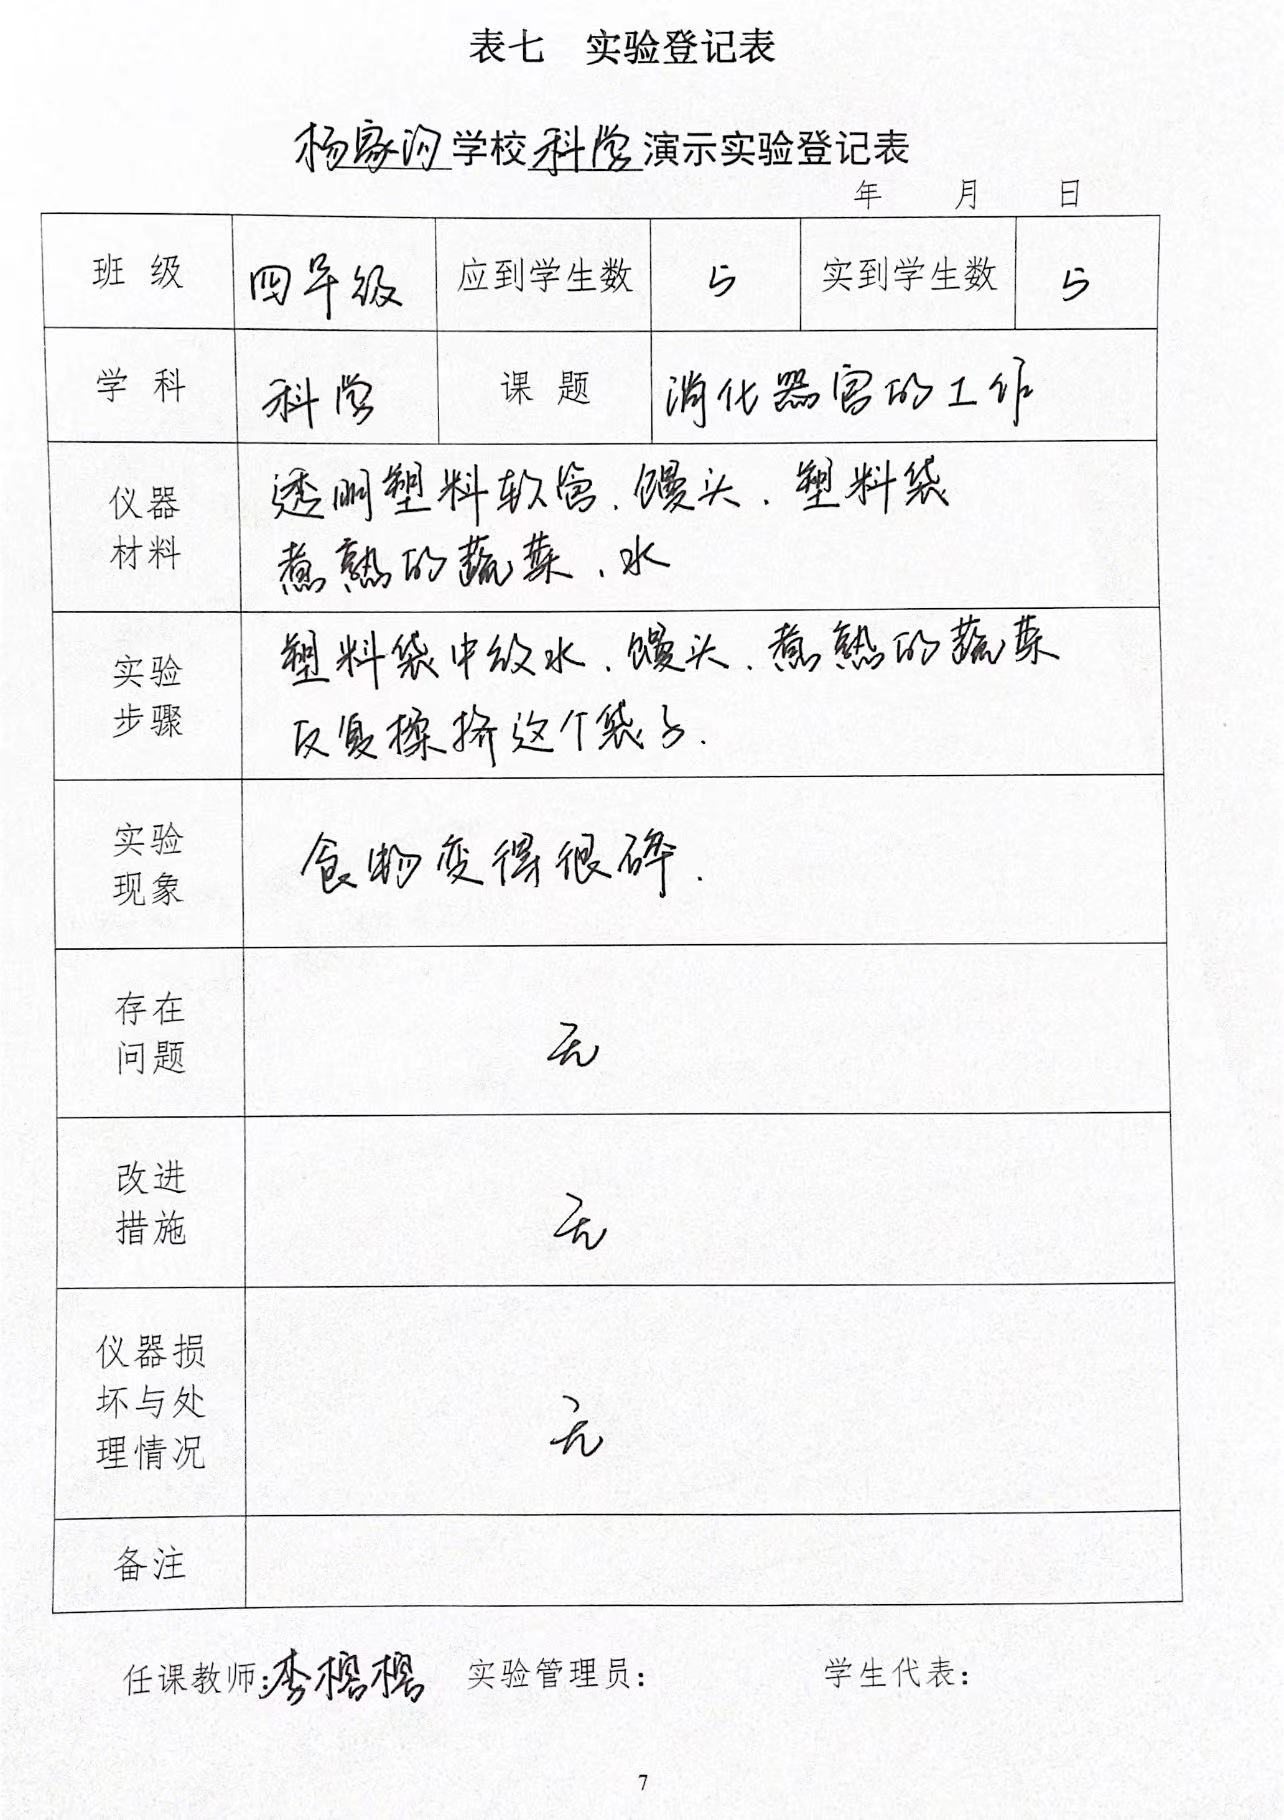 表七 实验登记表
杨家沟学校科学演示实验登记表
年 月 日
班 级 四年级 应到学生数 5 实到学生数 5
学 科 科学 课 题 消化器官的工作
仪器
材料
透明塑料软管、馒头、塑料袋
煮熟的蔬菜、水
实验
步骤
塑料袋中放水、馒头、煮熟的蔬菜
反复揉挤这个袋子.
实验
现象
食物变得很碎.
存在
问题
无
改进
措施
无
仪器损
坏与处
理情况
无
备注
任课教师:李榕榕 实验管理员: 学生代表:
7